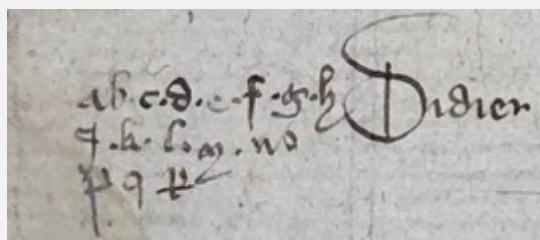 a b c . d . e . f . g . h Didier
q . k . l . m . n o
p q